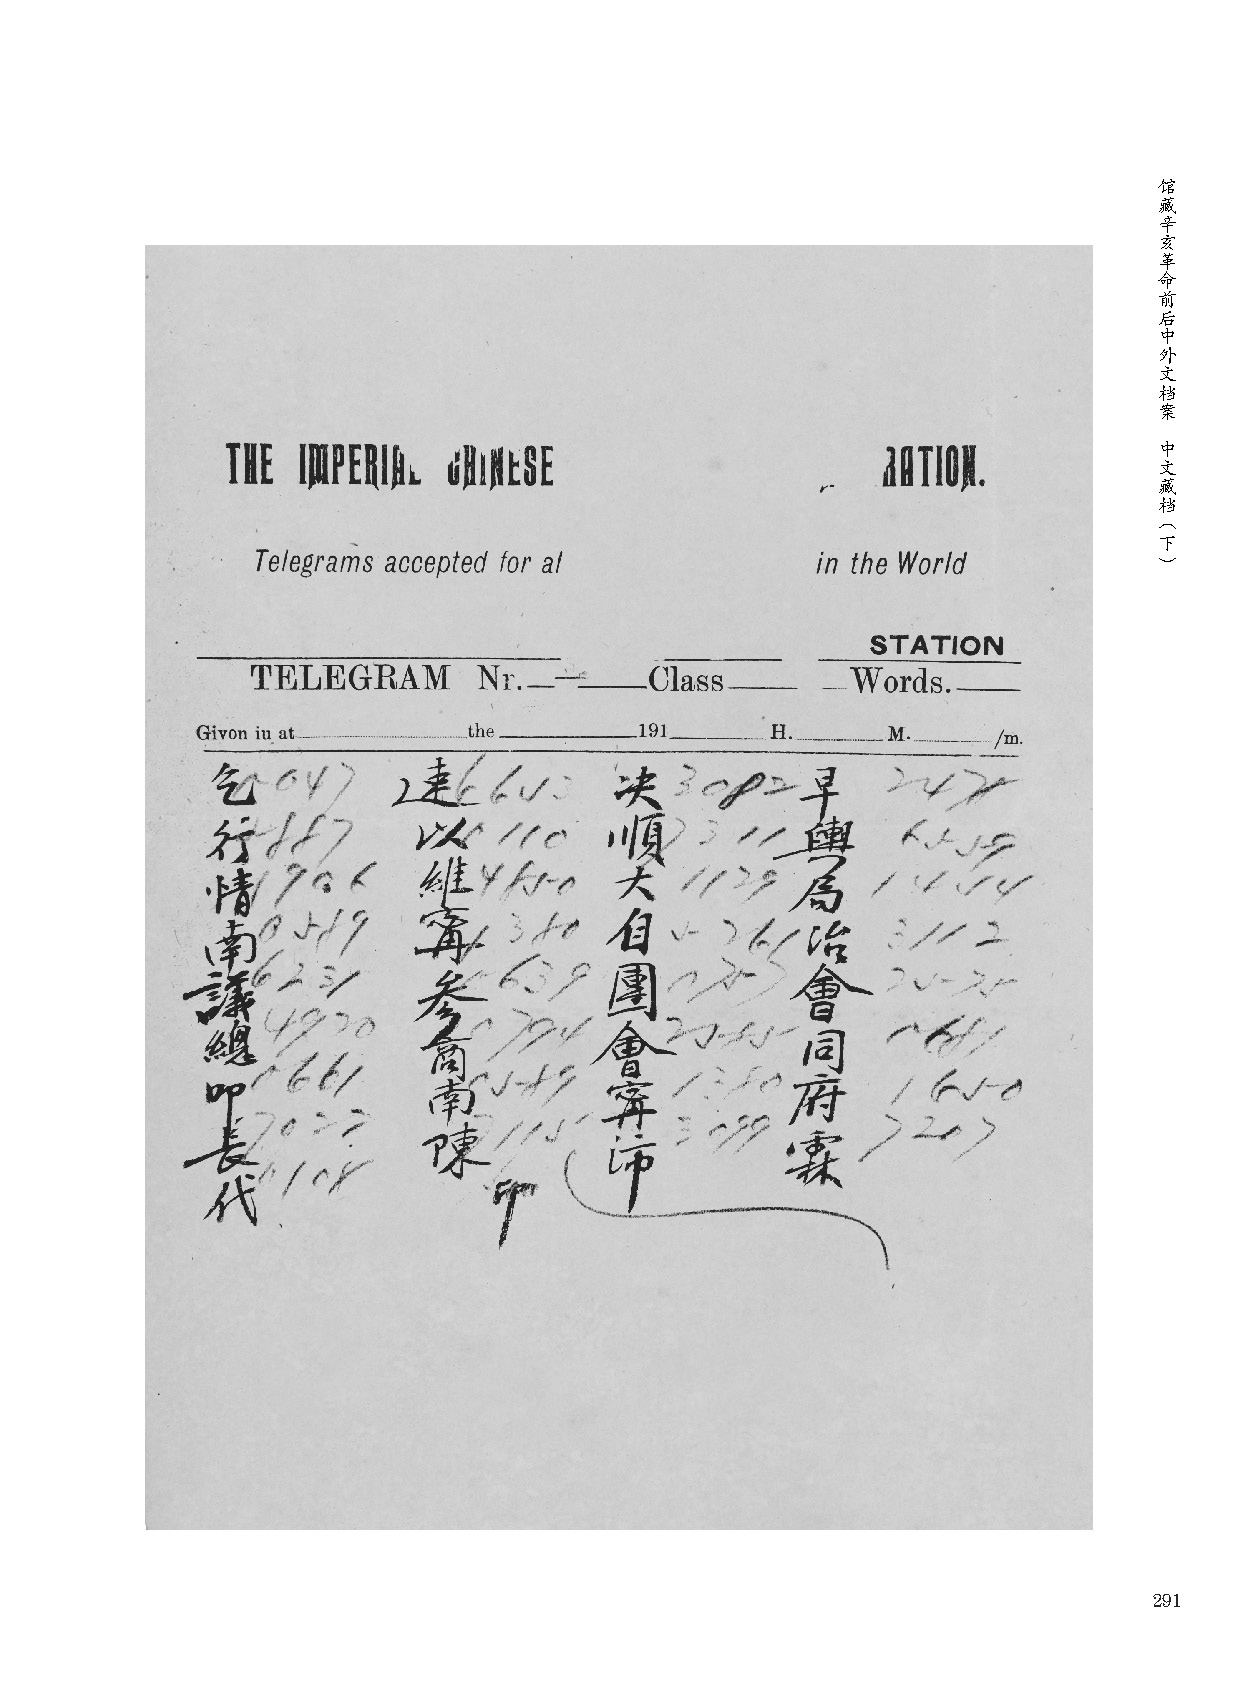 馆藏辛亥革命前后中外文档案 中文藏档（下）
THE IMPERIAL CHINESE RATION.
Telegrams accepted for al in the World
STATION
TELEGRAM Nr. Class Words.
Givon iu at the 191 H. M. /m.
乞 0047 速 6643 决 3082 早
行 5887 以 0110 順 7311 輿 6559
情 1906 維 4850 大 1129 局 1444
南 0589 寗 1380 自 5261 治 3112
議 6231 参 0639 團 0957 會 2585
總 4920 商 0794 會 2585 同 0681
叩 0661 南 0589 寗 1380 府 1650
長 7022 陳 7115 沛 3099 霖 7207
代 0108 印
291